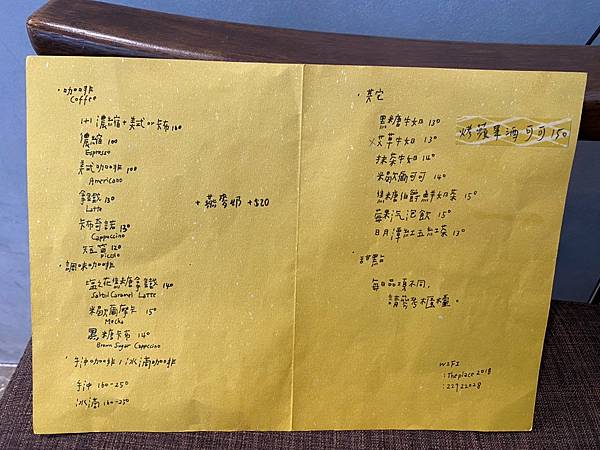 ·咖啡
Coffee
1+1 濃縮+美式or卡布 160
濃縮 100
Espresso
美式咖啡 100
Americano
拿鐵 130
Latte
卡布奇諾 130
Cappuccino
短笛 120
piccolo
·調味咖啡
鹽之花焦糖拿鐵 140
Salted Caramel Latte
米歇爾摩卡 150
Mocha
黑糖卡布 140
Brown Sugar Cappccino
·手沖咖啡/冰滴咖啡
手沖 160-250
冰滴 160-250
+ 燕麥奶 +$20
·其它
黑糖牛奶 130
艾草牛奶 130
抹茶牛奶 140
米歇爾可可 140
焦糖伯爵鮮奶茶 150
莓果汽泡飲 150
日月潭紅玉紅茶 130
烤蘋果酒可可 150
·甜點
每日品項不同,
請參考櫃檯。
WIFI
:Theplace2018
:22922028